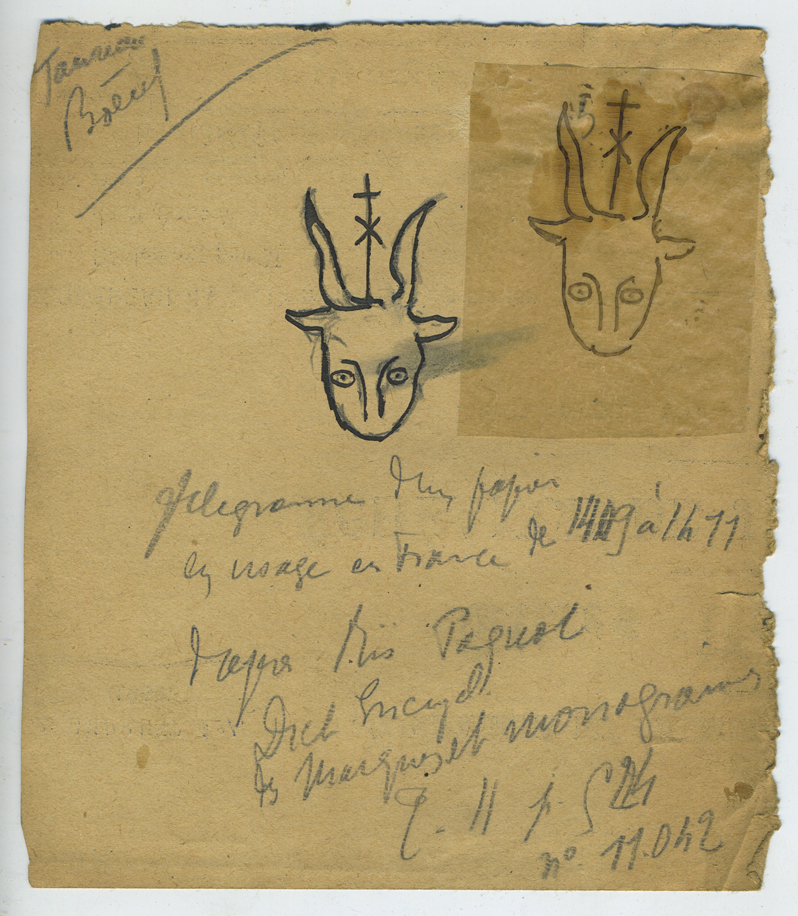 Taureau
Bœuf
filigramme d'un papier
en usage en France de 1419 à 1471
d'après Ris Paquot
Dict Encycl
des Marques et monogrammes
T. II p. 524
n° 11.042